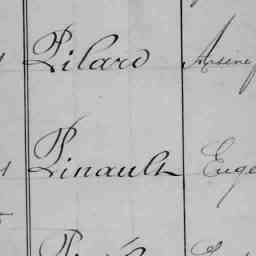 Pilard Arsène
Pinault Eugè